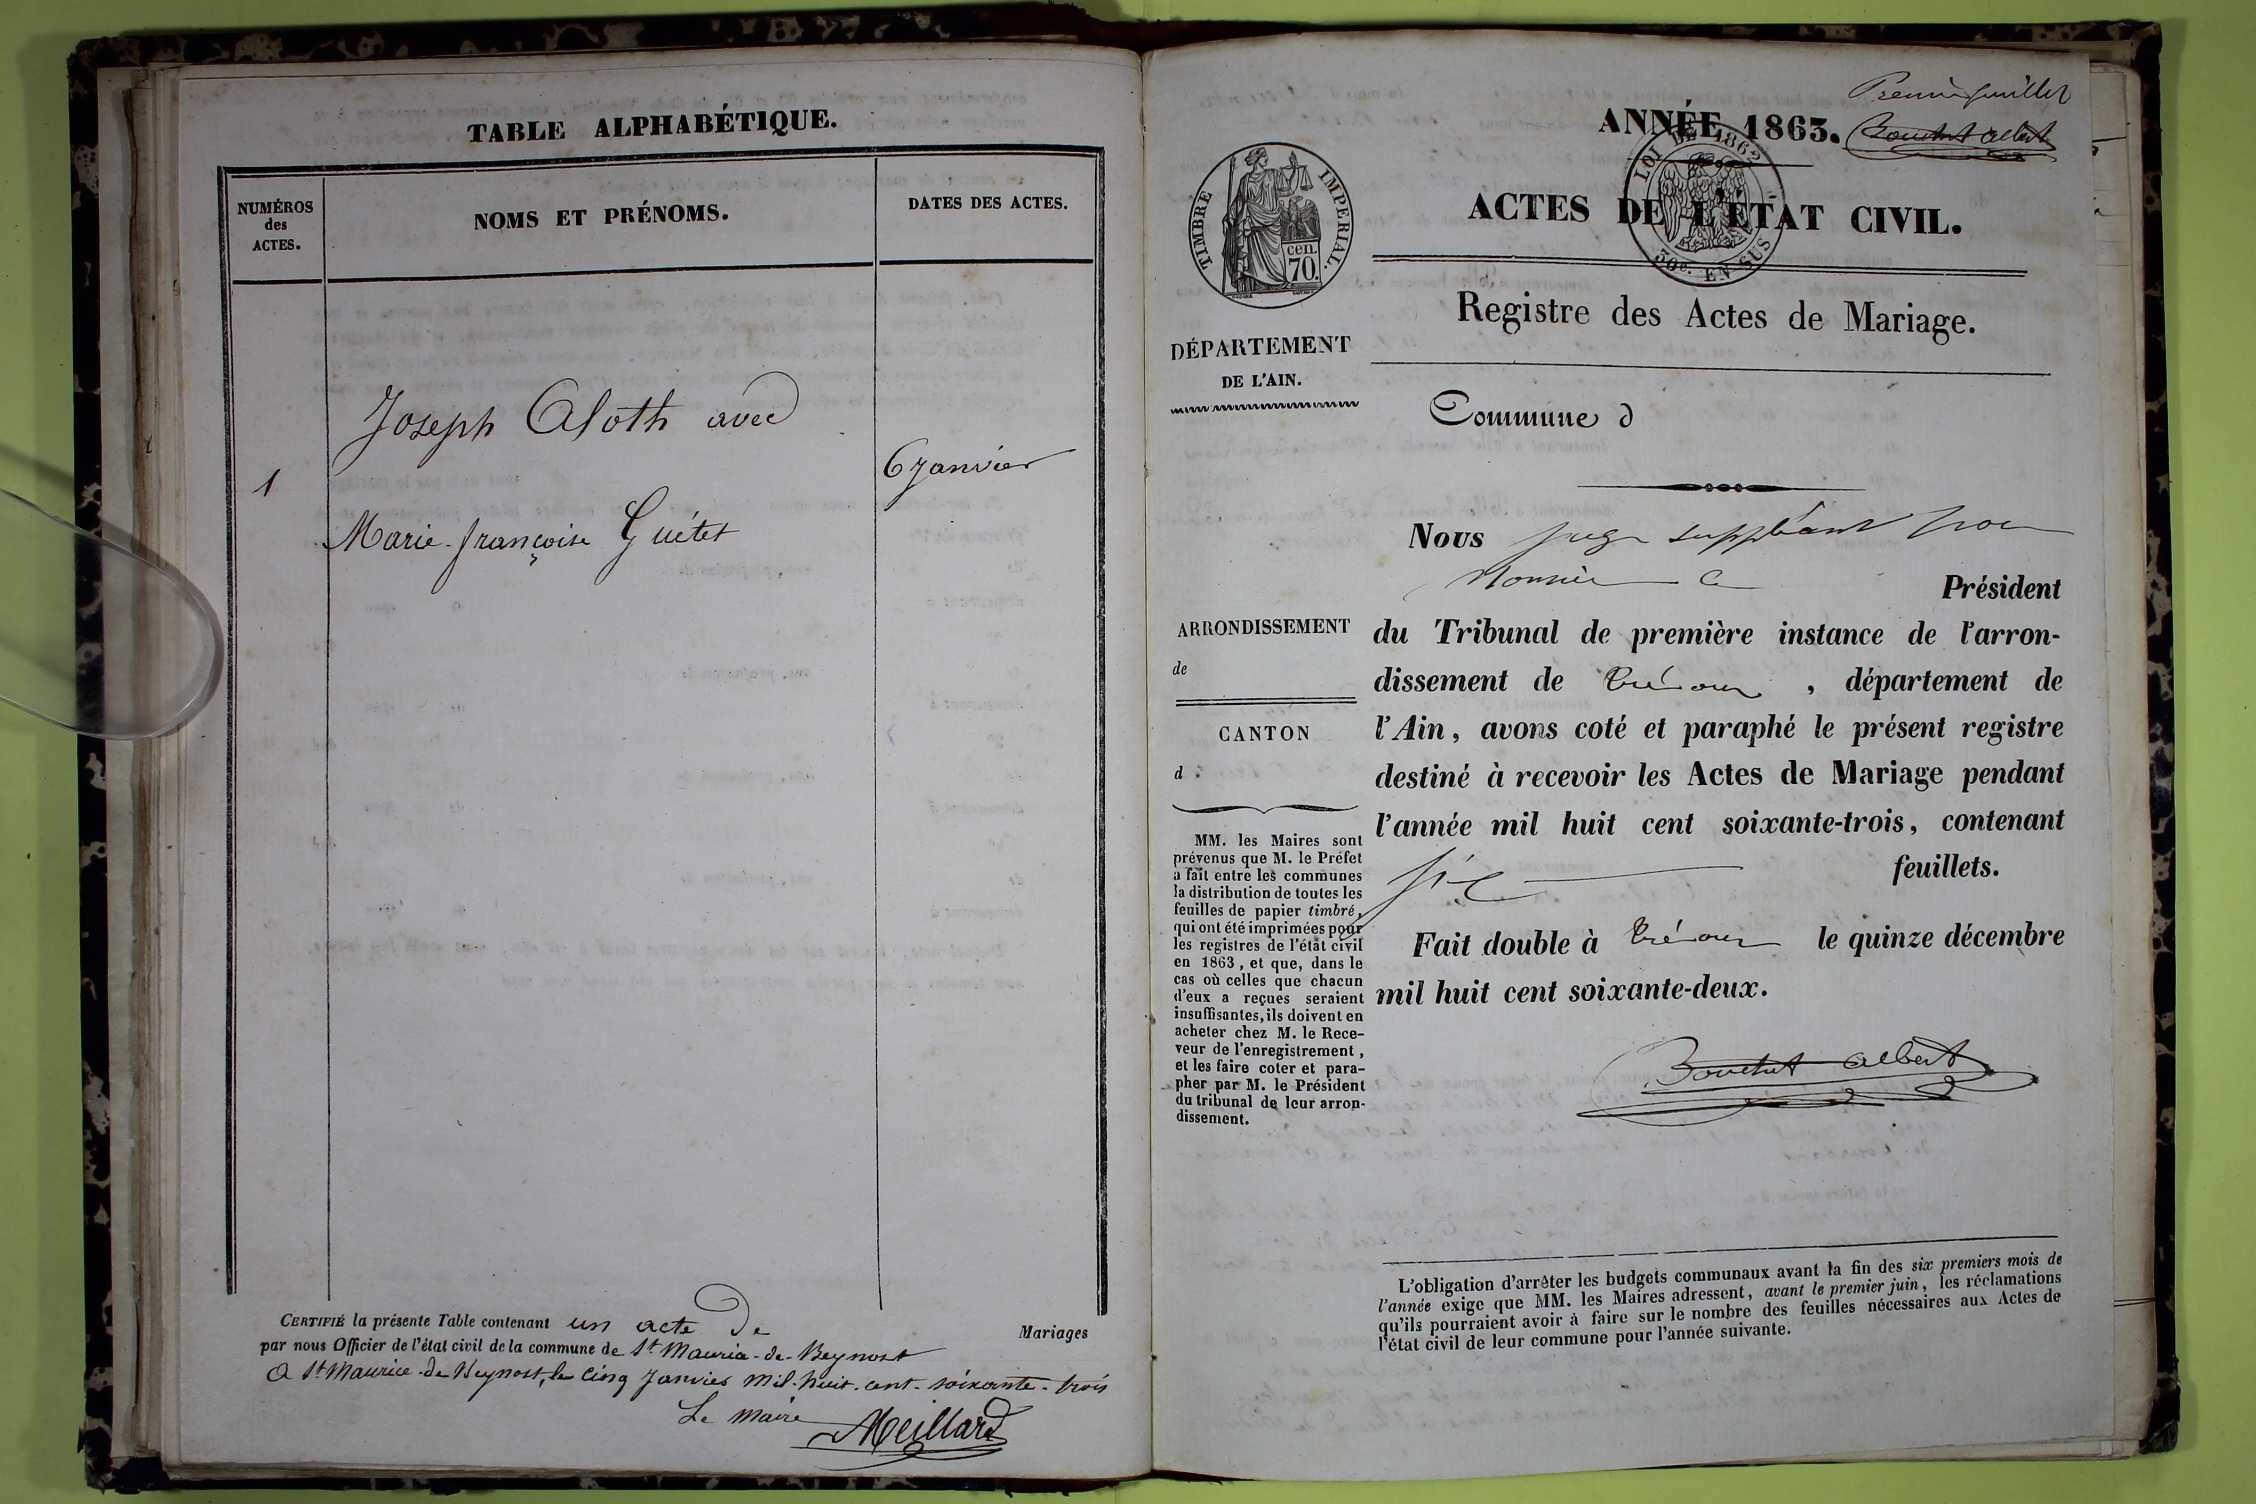 TABLE ALPHABÉTIQUE.
NUMÉROS
des
ACTES.
NOMS ET PRÉNOMS.
DATES DES ACTES.
Joseph Aloth avec
1
6 Janvier
Marie-françoise Guétet
CERTIFIÉ la présente Table contenant un acte de Mariages
par nous Officier de l'état civil de la commune de St Maurice-de-Beynost
A St Maurice-de Beynost, le cinq Janvier mil-huit-cent-soixante-trois
Le Maire
Meillard
Premier feuillet
ANNÉE 1863.
Bouchet Albert
LOI DE 1862
50c. EN SUS
TIMBRE IMPERIAL.
cen.
70.
ACTES DE L'ÉTAT CIVIL.
Registre des Actes de Mariage.
DÉPARTEMENT
DE L'AIN.
Commune d
ARRONDISSEMENT
de
CANTON
d
MM. les Maires sont
prévenus que M. le Préfet
a fait entre les communes
la distribution de toutes les
feuilles de papier timbré,
qui ont été imprimées pour
les registres de l'état civil
en 1863, et que, dans le
cas où celles que chacun
d'eux a reçues seraient
insuffisantes, ils doivent en
acheter chez M. le Rece-
veur de l'enregistrement,
et les faire coter et para-
pher par M. le Président
du tribunal de leur arron-
dissement.
Nous juge suppléant pour
Monsieur le Président
du Tribunal de première instance de l'arron-
dissement de Trévoux, département de
l'Ain, avons coté et paraphé le présent registre
destiné à recevoir les Actes de Mariage pendant
l'année mil huit cent soixante-trois, contenant
six feuillets.
Fait double à Trévoux le quinze décembre
mil huit cent soixante-deux.
Bouchet Albert
L'obligation d'arrêter les budgets communaux avant la fin des six premiers mois de
l'année exige que MM. les Maires adressent, avant le premier juin, les réclamations
qu'ils pourraient avoir à faire sur le nombre des feuilles nécessaires aux Actes de
l'état civil de leur commune pour l'année suivante.